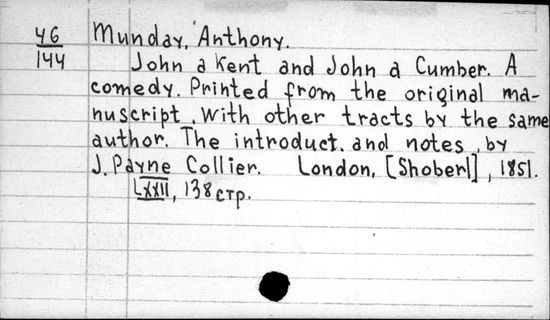 46 Munday, Anthony.
144 John a Kent and John a Cumber. A
comedy. Printed from the original ma-
nuscript, with other tracts by the same
author. The introduct. and notes, by
J. Payne Collier. London, [Shoberl], 1851.
LXXII, 138 стр.